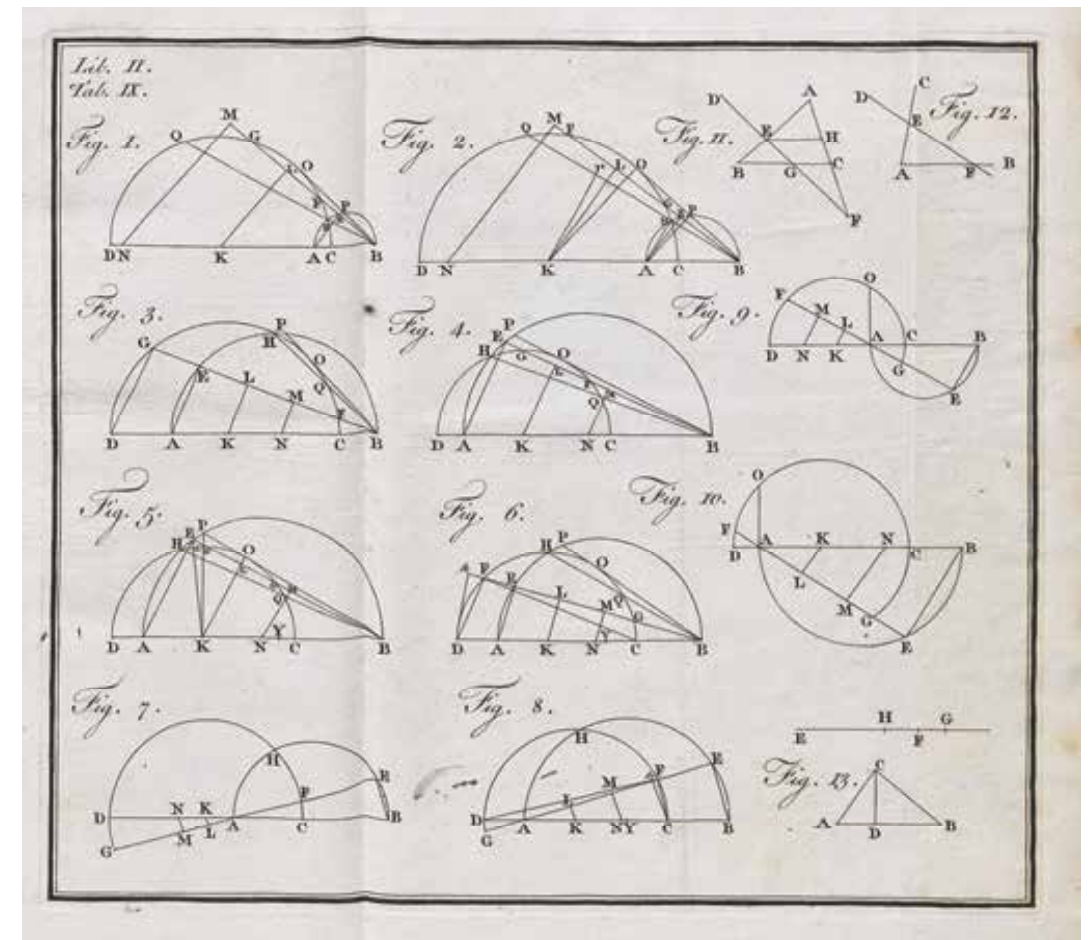 Lib. II.
Tab. IX.
Fig. 1.
M
Q G
L O
F P
D N K A C B
Fig. 2.
Q M F
r L O
P
D N K A C B
Fig. 11.
D A
E H
B G C
F
Fig. 12.
C
D
E
A F B
Fig. 3.
G P
H
E L O
M Q
F
D A K N C B
Fig. 4.
P
E
H G O
L
Q
D A K N C B
Fig. 9.
O
F M
L
D N K A C B
G
E
Fig. 5.
P
E
H O
L
Q
Y
D A K N C B
Fig. 6.
H P
F E O
L
M Q
G
Y
D A K N C B
Fig. 10.
O
F
D A K N C B
L
M G
E
Fig. 7.
H
E
F
D N K A C B
M L
G
Fig. 8.
H
M F E
L
D A K N Y C B
G
H G
E F
Fig. 13.
C
A D B